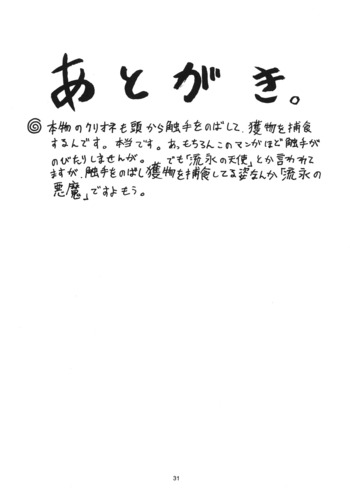 あとがき。
本物のクリオネも頭から触手をのばして、獲物を捕食
するんです。本当です。あ、もちろんこのマンガほど触手が
のびたりしませんが。 でも「流氷の天使」とか言われて
ますが、触手をのばし獲物を捕食してる姿なんか「流氷の
悪魔」ですよもう。
31